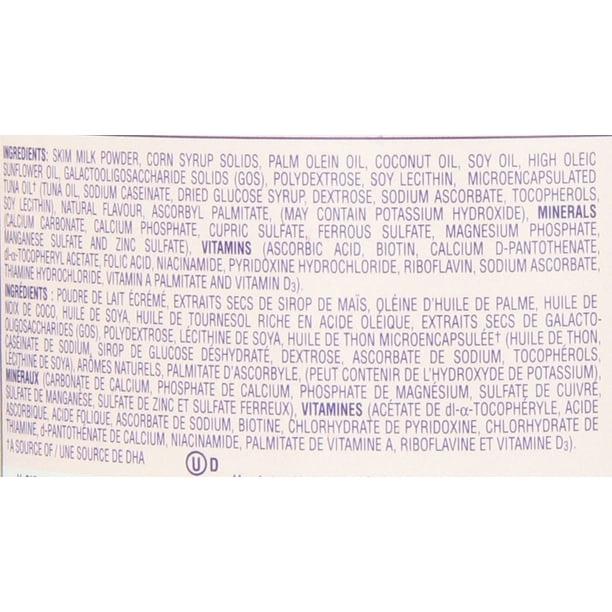 INGREDIENTS: SKIM MILK POWDER, CORN SYRUP SOLIDS, PALM OLEIN OIL, COCONUT OIL, SOY OIL, HIGH OLEIC
SUNFLOWER OIL, GALACTOOLIGOSACCHARIDE SOLIDS (GOS), POLYDEXTROSE, SOY LECITHIN, MICROENCAPSULATED
TUNA OIL† (TUNA OIL, SODIUM CASEINATE, DRIED GLUCOSE SYRUP, DEXTROSE, SODIUM ASCORBATE, TOCOPHEROLS,
SOY LECITHIN), NATURAL FLAVOUR, ASCORBYL PALMITATE, (MAY CONTAIN POTASSIUM HYDROXIDE), MINERALS
(CALCIUM CARBONATE, CALCIUM PHOSPHATE, CUPRIC SULFATE, FERROUS SULFATE, MAGNESIUM PHOSPHATE,
MANGANESE SULFATE AND ZINC SULFATE), VITAMINS (ASCORBIC ACID, BIOTIN, CALCIUM D-PANTOTHENATE,
dl-α-TOCOPHERYL ACETATE, FOLIC ACID, NIACINAMIDE, PYRIDOXINE HYDROCHLORIDE, RIBOFLAVIN, SODIUM ASCORBATE,
THIAMINE HYDROCHLORIDE, VITAMIN A PALMITATE AND VITAMIN D3).
INGRÉDIENTS : POUDRE DE LAIT ÉCRÉMÉ, EXTRAITS SECS DE SIROP DE MAÏS, OLÉINE D'HUILE DE PALME, HUILE DE
NOIX DE COCO, HUILE DE SOYA, HUILE DE TOURNESOL RICHE EN ACIDE OLÉIQUE, EXTRAITS SECS DE GALACTO-
OLIGOSACCHARIDES (GOS), POLYDEXTROSE, LÉCITHINE DE SOYA, HUILE DE THON MICROENCAPSULÉE† (HUILE DE THON,
CASÉINATE DE SODIUM, SIROP DE GLUCOSE DÉSHYDRATÉ, DEXTROSE, ASCORBATE DE SODIUM, TOCOPHÉROLS,
LÉCITHINE DE SOYA), ARÔMES NATURELS, PALMITATE D'ASCORBYLE, (PEUT CONTENIR DE L'HYDROXYDE DE POTASSIUM),
MINÉRAUX (CARBONATE DE CALCIUM, PHOSPHATE DE CALCIUM, PHOSPHATE DE MAGNÉSIUM, SULFATE DE CUIVRE,
SULFATE DE MANGANÈSE, SULFATE DE ZINC ET SULFATE FERREUX), VITAMINES (ACÉTATE DE dl-α-TOCOPHÉRYLE, ACIDE
ASCORBIQUE, ACIDE FOLIQUE, ASCORBATE DE SODIUM, BIOTINE, CHLORHYDRATE DE PYRIDOXINE, CHLORHYDRATE DE
THIAMINE, d-PANTOTHÉNATE DE CALCIUM, NIACINAMIDE, PALMITATE DE VITAMINE A, RIBOFLAVINE ET VITAMINE D3).
†A SOURCE OF / UNE SOURCE DE DHA
U D